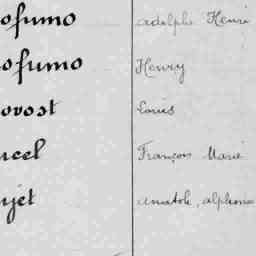 ofumo adolphe Henri
ofumo Henry
ovost Louis
ucel François Marie
ujet anatole, alphonse